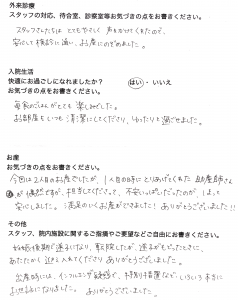 外来診療
スタッフの対応、待合室、診察室等お気づきの点をお書きください。
スタッフさんたちは とてもやさしく 声をかけてくれたので、
安心して検診に通い、お産にのぞめました。
入院生活
快適にお過ごしになれましたか？ はい・いいえ
お気づきの点をお書きください。
毎食のごはんがとても楽しみでした。
お部屋もいつも清潔にしてくださり、ゆったりと過ごせました。
お産
お気づきの点をお書きください。
今回は2人目のお産でしたが、1人目の時にとりあげてくれた助産師さん
が偶然ですが、担当してくださって、不安いっぱいだったのが、ほっと
安心しました。満足のいくお産ができました！ありがとうございました!!
その他
スタッフ、院内施設に関するご指摘やご要望などご自由にお書きください。
妊娠後期で逆子になり、転院したが、逆子がもどったときに、
あたたかく迎え入れてくださりありがとうございました。
出産時には、インフルエンザ で、特別措置など、いろいろ本当に
お世話になりました。ありがとうございました。